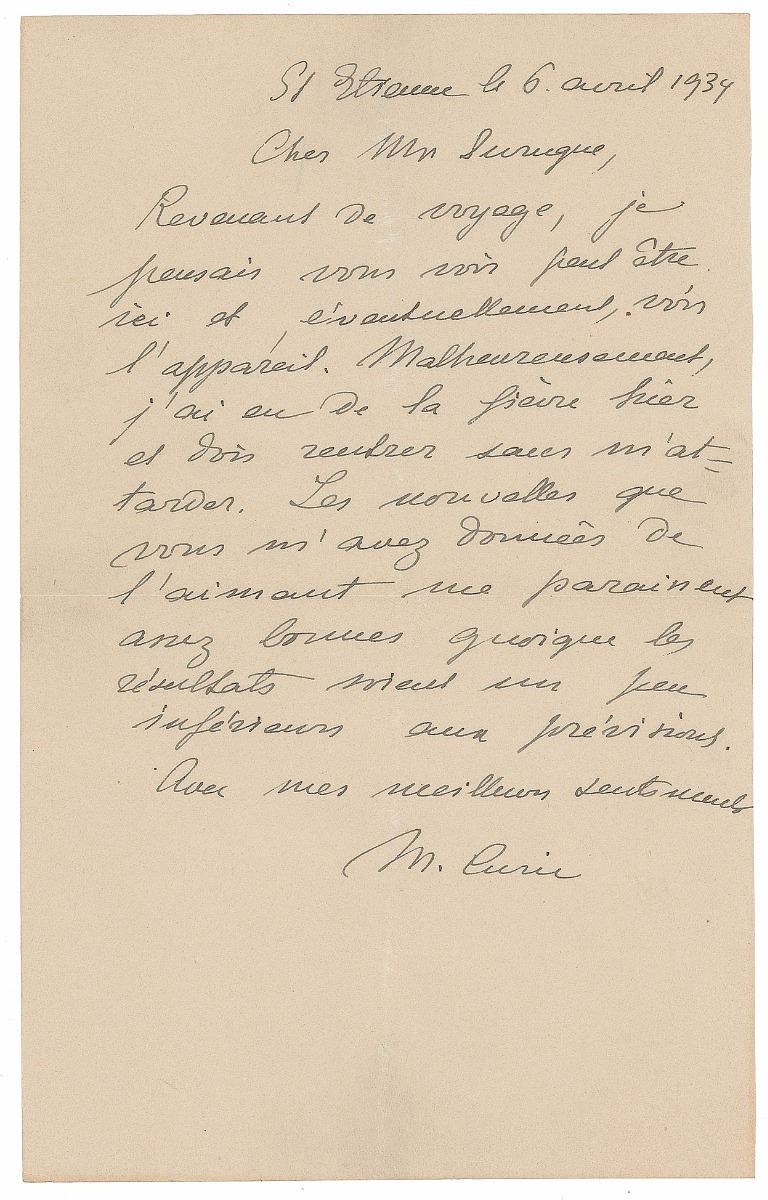 St Etienne le 6. avril 1934
Cher Mr Surugue,
Revenant de voyage, je
pensais vous voir peut être
ici et, éventuellement, voir
l'appareil. Malheureusement,
j'ai eu de la fièvre hier
et dois rentrer sans m'at=
tarder. Les nouvelles que
vous m'avez données de
l'aimant me paraissent
assez bonnes quoique les
résultats soient un peu
inférieurs aux prévisions.
Avec mes meilleurs sentiments
M. Curie